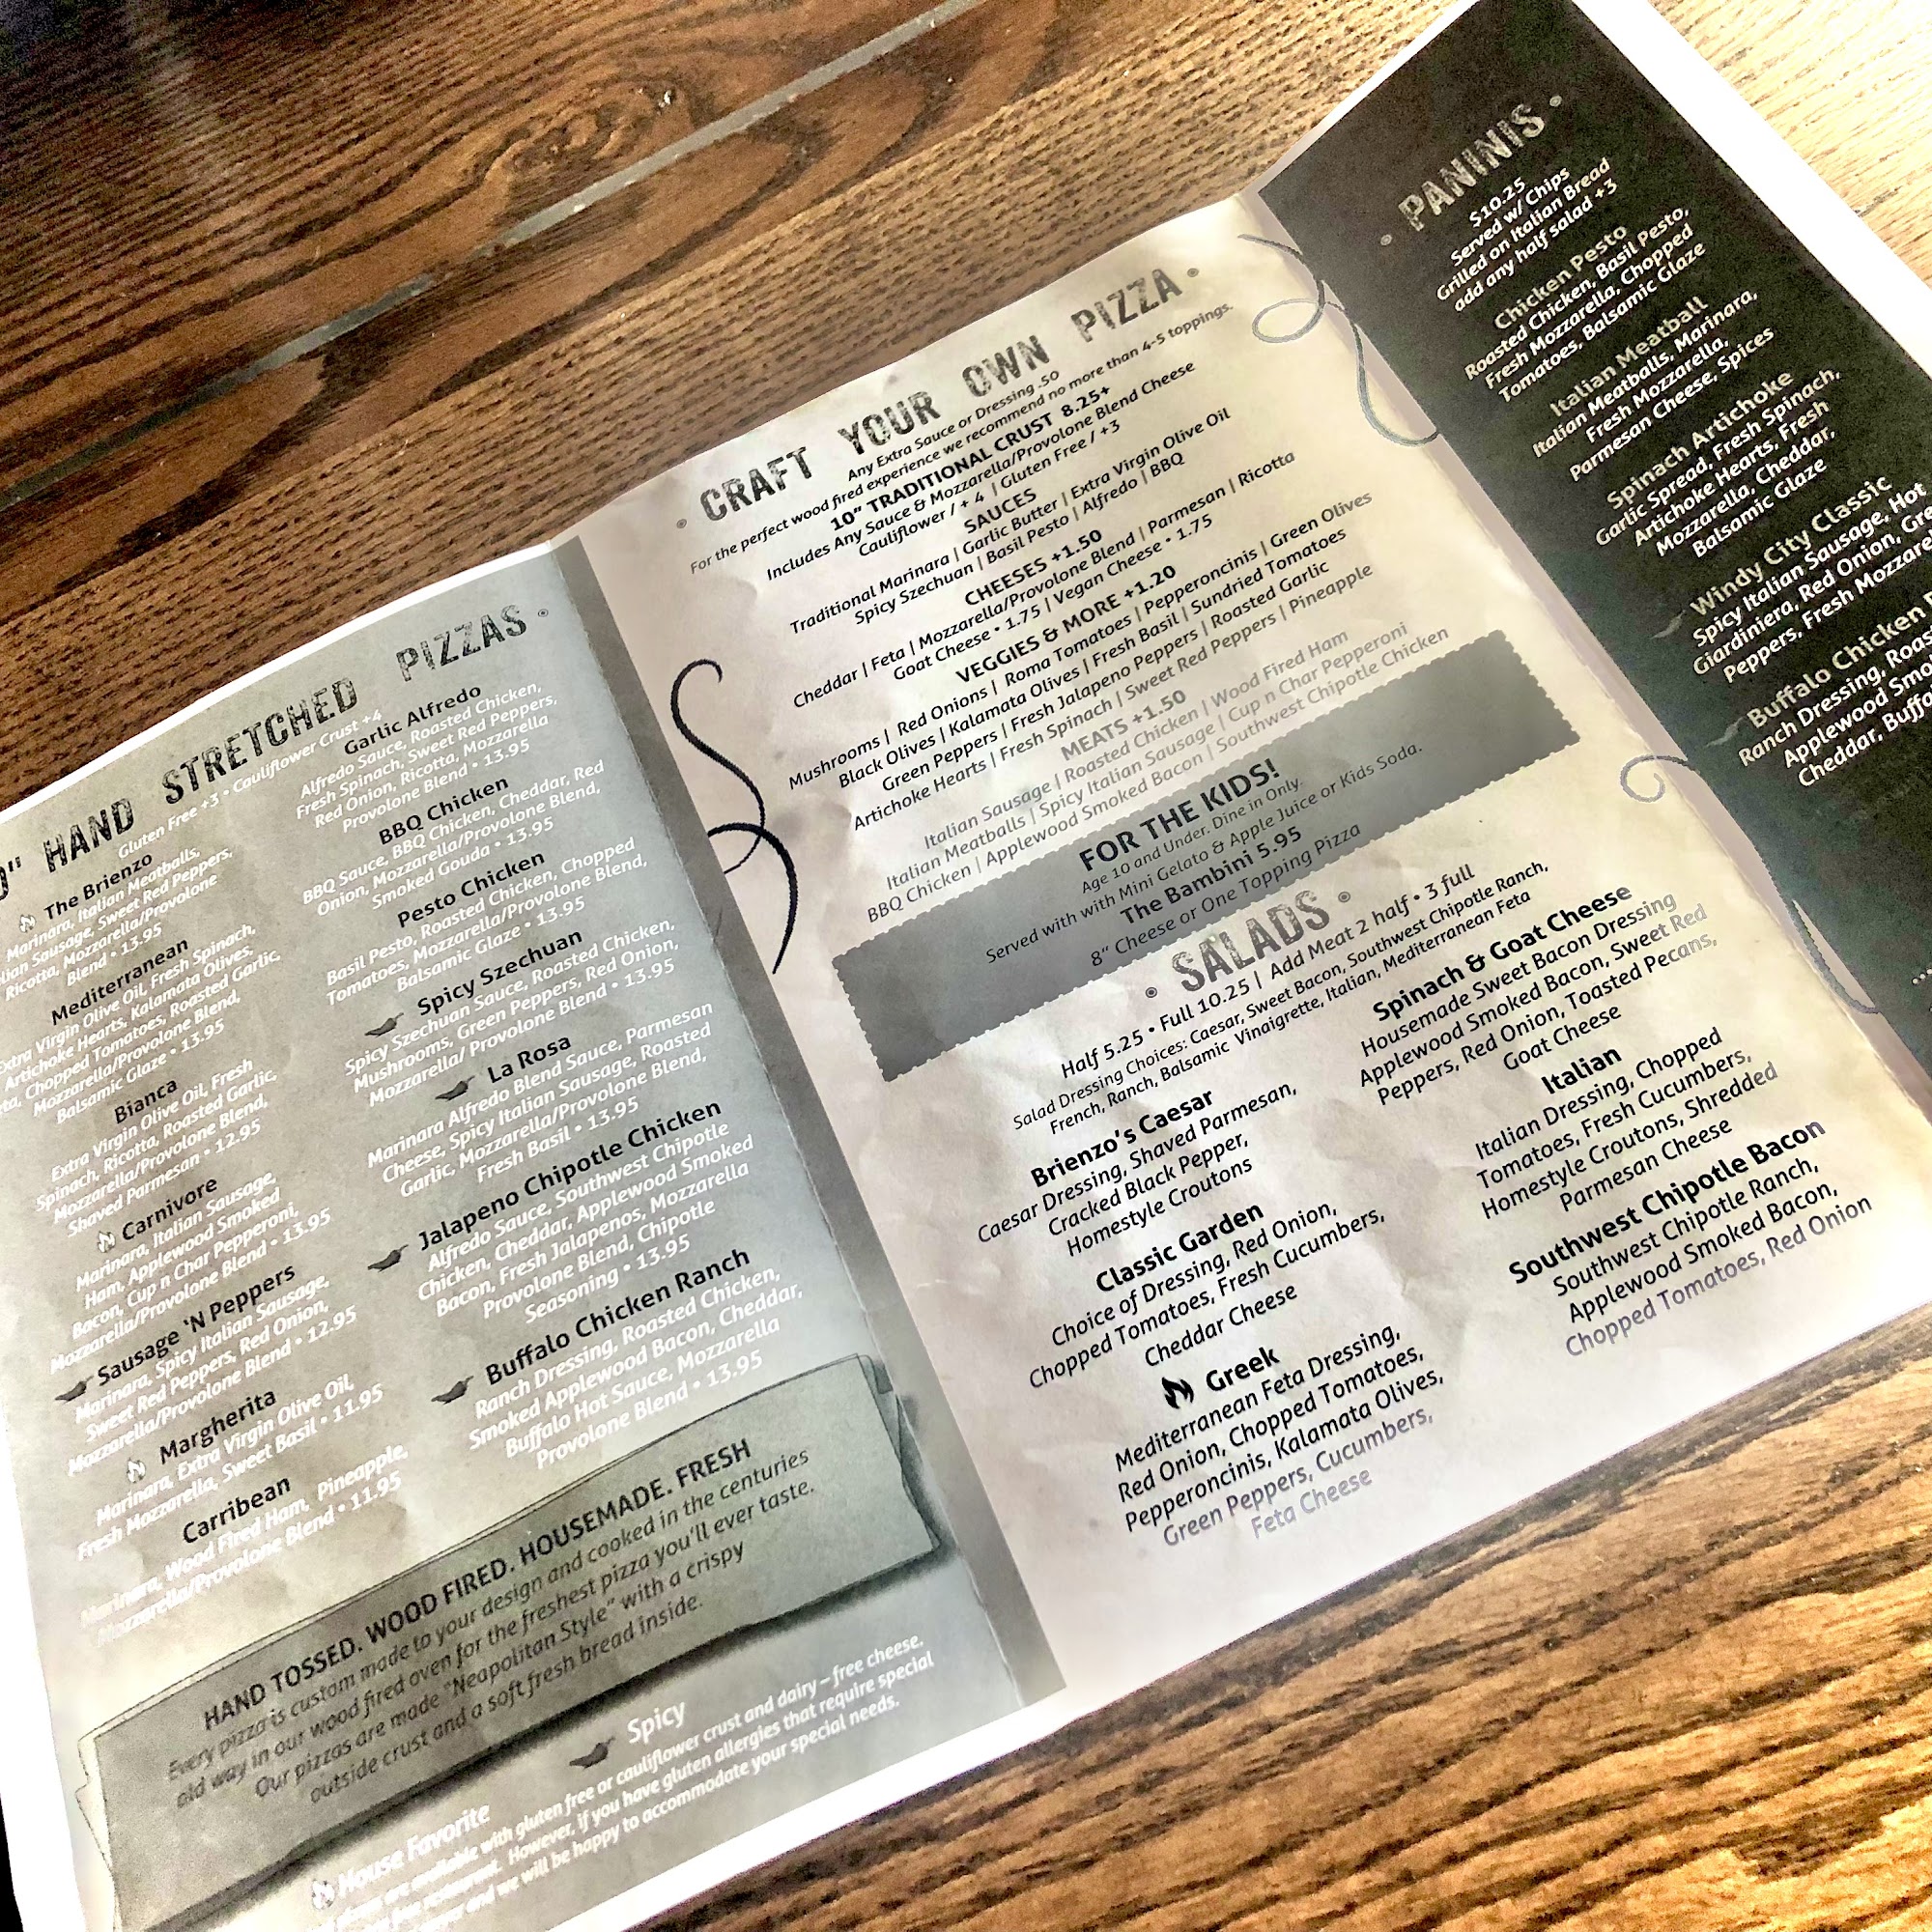 HAND STRETCHED PIZZAS
Gluten Free +3 • Cauliflower Crust +4
The Brienzo
Marinara, Italian Meatballs,
Sausage, Sweet Red Peppers,
Ricotta, Mozzarella/Provolone
Blend • 13.95
Mediterranean
Extra Virgin Olive Oil, Fresh Spinach,
Artichoke Hearts, Kalamata Olives,
Chopped Tomatoes, Roasted Garlic,
Mozzarella/Provolone Blend,
Balsamic Glaze • 13.95
Bianca
Extra Virgin Olive Oil, Fresh
Spinach, Ricotta, Roasted Garlic,
Mozzarella/Provolone Blend,
Shaved Parmesan • 12.95
Carnivore
Marinara, Italian Sausage,
Ham, Applewood Smoked
Bacon, Cup n Char Pepperoni,
Mozzarella/Provolone Blend • 13.95
Sausage 'N Peppers
Marinara, Spicy Italian Sausage,
Sweet Red Peppers, Red Onion,
Mozzarella/Provolone Blend • 12.95
Margherita
Marinara, Extra Virgin Olive Oil,
Fresh Mozzarella, Sweet Basil • 11.95
Carribean
Marinara, Wood Fired Ham, Pineapple,
Mozzarella/Provolone Blend • 11.95
Garlic Alfredo
Alfredo Sauce, Roasted Chicken,
Fresh Spinach, Sweet Red Peppers,
Red Onion, Ricotta, Mozzarella
Provolone Blend • 13.95
BBQ Chicken
BBQ Sauce, BBQ Chicken, Cheddar, Red
Onion, Mozzarella/Provolone Blend,
Smoked Gouda • 13.95
Pesto Chicken
Basil Pesto, Roasted Chicken, Chopped
Tomatoes, Mozzarella/Provolone Blend,
Balsamic Glaze • 13.95
Spicy Szechuan
Spicy Szechuan Sauce, Roasted Chicken,
Mushrooms, Green Peppers, Red Onion,
Mozzarella/ Provolone Blend • 13.95
La Rosa
Marinara Alfredo Blend Sauce, Parmesan
Cheese, Spicy Italian Sausage, Roasted
Garlic, Mozzarella/Provolone Blend,
Fresh Basil • 13.95
Jalapeno Chipotle Chicken
Alfredo Sauce, Southwest Chipotle
Chicken, Cheddar, Applewood Smoked
Bacon, Fresh Jalapenos, Mozzarella
Provolone Blend, Chipotle
Seasoning • 13.95
Buffalo Chicken Ranch
Ranch Dressing, Roasted Chicken,
Smoked Applewood Bacon, Cheddar,
Buffalo Hot Sauce, Mozzarella
Provolone Blend • 13.95
HAND TOSSED. WOOD FIRED. HOUSEMADE. FRESH
Every pizza is custom made to your design and cooked in the centuries
old way in our wood fired oven for the freshest pizza you'll ever taste.
Our pizzas are made "Neapolitan Style" with a crispy
outside crust and a soft fresh bread inside.
House Favorite
Spicy
are available with gluten free or cauliflower crust and dairy – free cheese.
restaurant. However, if you have gluten allergies that require special
and we will be happy to accommodate your special needs.
CRAFT YOUR OWN PIZZA
Any Extra Sauce or Dressing .50
For the perfect wood fired experience we recommend no more than 4-5 toppings.
10" TRADITIONAL CRUST 8.25+
Includes Any Sauce & Mozzarella/Provolone Blend Cheese
Cauliflower / + 4 | Gluten Free / +3
SAUCES
Traditional Marinara | Garlic Butter | Extra Virgin Olive Oil
Spicy Szechuan | Basil Pesto | Alfredo | BBQ
CHEESES +1.50
Cheddar | Feta | Mozzarella/Provolone Blend | Parmesan | Ricotta
Goat Cheese • 1.75 | Vegan Cheese • 1.75
VEGGIES & MORE +1.20
Mushrooms | Red Onions | Roma Tomatoes | Pepperoncinis | Green Olives
Black Olives | Kalamata Olives | Fresh Basil | Sundried Tomatoes
Green Peppers | Fresh Jalapeno Peppers | Roasted Garlic
Artichoke Hearts | Fresh Spinach | Sweet Red Peppers | Pineapple
MEATS +1.50
Italian Sausage | Roasted Chicken | Wood Fired Ham
Italian Meatballs | Spicy Italian Sausage | Cup n Char Pepperoni
BBQ Chicken | Applewood Smoked Bacon | Southwest Chipotle Chicken
FOR THE KIDS!
Age 10 and Under. Dine in Only.
Served with with Mini Gelato & Apple Juice or Kids Soda.
The Bambini 5.95
8" Cheese or One Topping Pizza
SALADS
Half 5.25 • Full 10.25 | Add Meat 2 half • 3 full
Salad Dressing Choices: Caesar, Sweet Bacon, Southwest Chipotle Ranch,
French, Ranch, Balsamic Vinaigrette, Italian, Mediterranean Feta
Brienzo's Caesar
Caesar Dressing, Shaved Parmesan,
Cracked Black Pepper,
Homestyle Croutons
Classic Garden
Choice of Dressing, Red Onion,
Chopped Tomatoes, Fresh Cucumbers,
Cheddar Cheese
Greek
Mediterranean Feta Dressing,
Red Onion, Chopped Tomatoes,
Pepperoncinis, Kalamata Olives,
Green Peppers, Cucumbers,
Feta Cheese
Spinach & Goat Cheese
Housemade Sweet Bacon Dressing
Applewood Smoked Bacon, Sweet Red
Peppers, Red Onion, Toasted Pecans,
Goat Cheese
Italian
Italian Dressing, Chopped
Tomatoes, Fresh Cucumbers,
Homestyle Croutons, Shredded
Parmesan Cheese
Southwest Chipotle Bacon
Southwest Chipotle Ranch,
Applewood Smoked Bacon,
Chopped Tomatoes, Red Onion
PANINIS
$10.25
Served w/ Chips
Grilled on Italian Bread
add any half salad +3
Chicken Pesto
Roasted Chicken, Basil Pesto,
Fresh Mozzarella, Chopped
Tomatoes, Balsamic Glaze
Italian Meatball
Italian Meatballs, Marinara,
Fresh Mozzarella,
Parmesan Cheese, Spices
Spinach Artichoke
Garlic Spread, Fresh Spinach,
Artichoke Hearts, Fresh
Mozzarella, Cheddar,
Balsamic Glaze
Windy City Classic
Spicy Italian Sausage, Hot
Giardiniera, Red Onion,
Peppers, Fresh
Buffalo Chicken
Ranch Dressing,
Applewood
Cheddar,